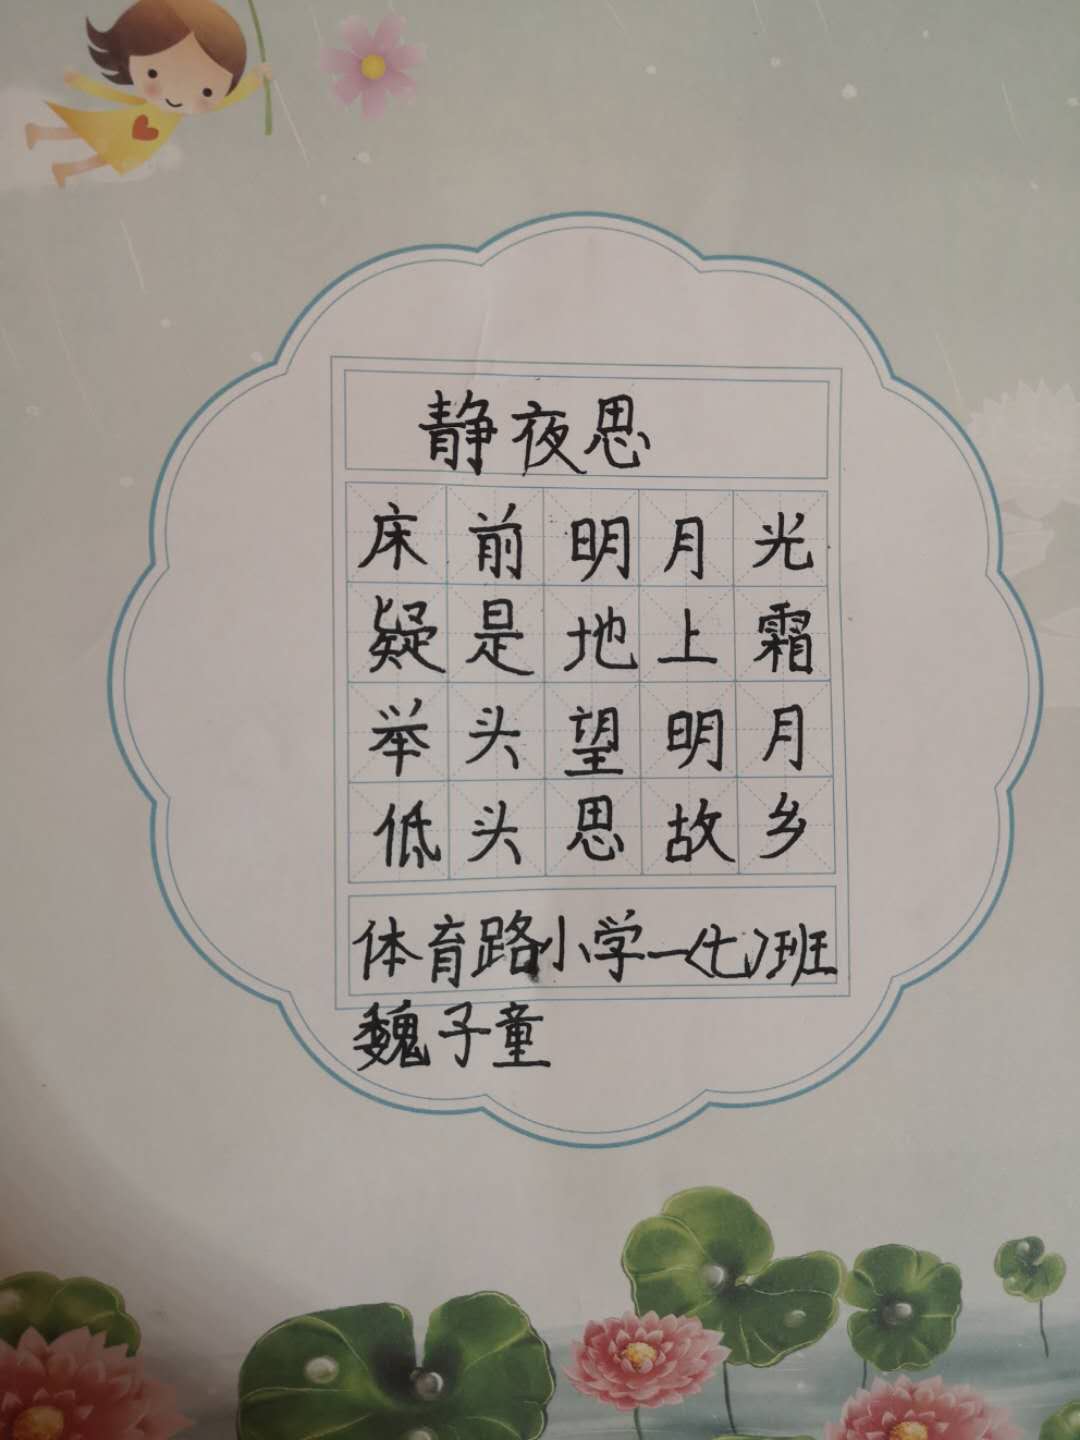 静夜思
床前明月光
疑是地上霜
举头望明月
低头思故乡
体育路小学一(七)班
魏子童